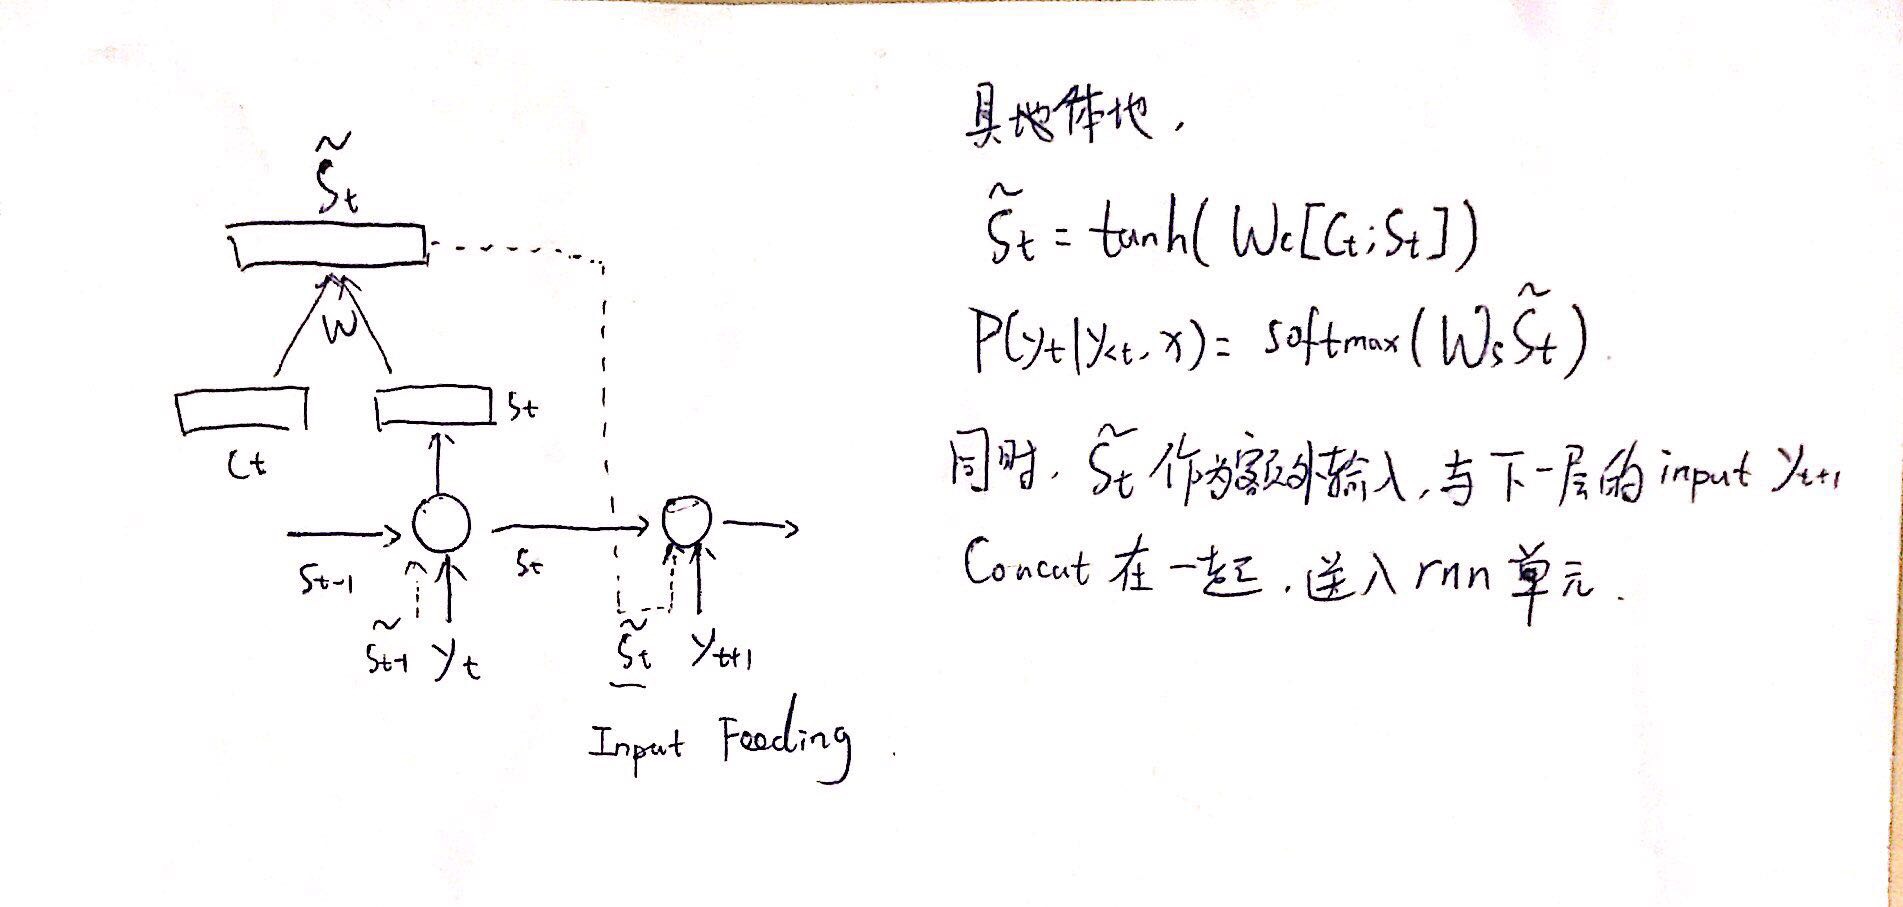 S̃t
W
Ct
St
St-1
St
S̃t-1 yt
S̃t yt+1
Input Feeding
具地体地，
S̃t = tanh( Wc[Ct;St])
P(yt|y<t, x) = softmax(WsS̃t)
同时，S̃t 作为额外输入，与下一层的 input yt+1
Concat 在一起，送入 rnn 单元．